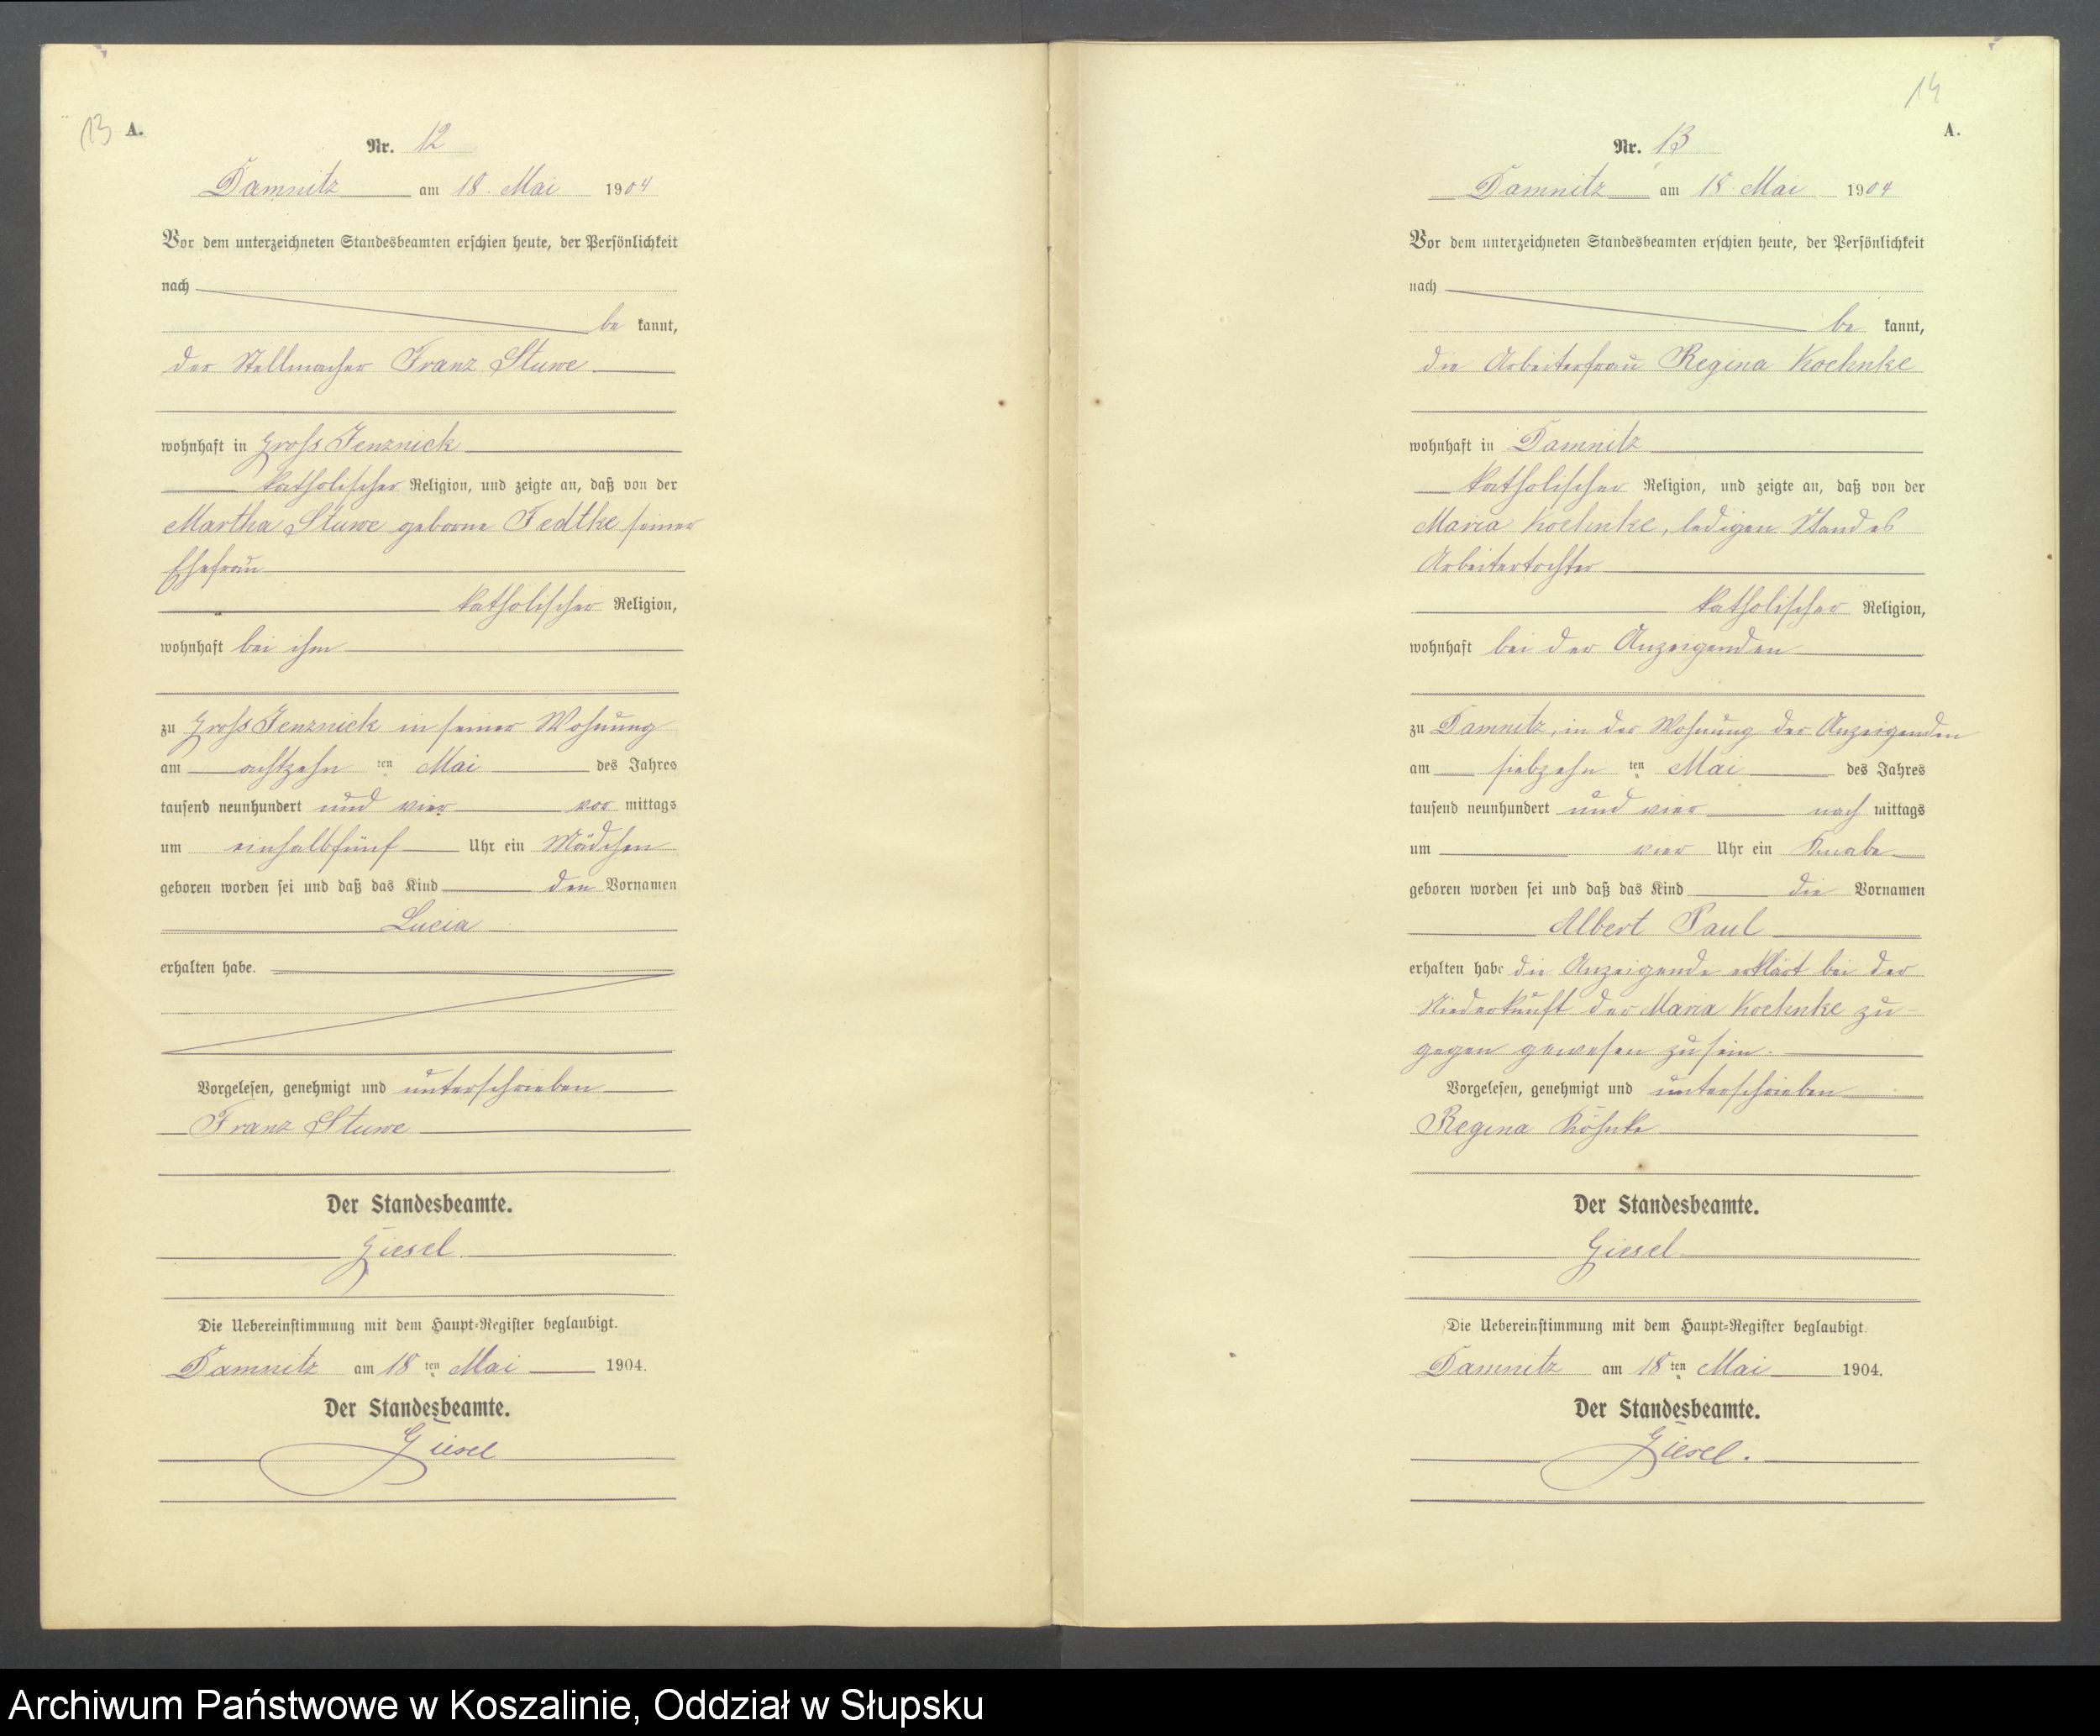 13 A.
Nr. 12
Damnitz am 18. Mai 1904
Vor dem unterzeichneten Standesbeamten erschien heute, der Persönlichkeit
nach
be kannt,
der Stellmacher Franz Stuwe
wohnhaft in Gross Jenznick
katholischer Religion, und zeigte an, daß von der
Martha Stuwe geborne Fedtke seiner
Ehefrau
katholischer Religion,
wohnhaft bei ihm
zu Gross Jenznick in seiner Wohnung
am achtzehn ten Mai des Jahres
tausend neunhundert und vier vor mittags
um einhalbfünf Uhr ein Mädchen
geboren worden sei und daß das Kind den Vornamen
Lucia
erhalten habe.
Vorgelesen, genehmigt und unterschrieben
Franz Stuwe
Der Standesbeamte.
Giesel.
Die Uebereinstimmung mit dem Haupt-Register beglaubigt.
Damnitz am 18 ten Mai 1904.
Der Standesbeamte.
Giesel
14
A.
Nr. 13
Damnitz am 18 Mai 1904
Vor dem unterzeichneten Standesbeamten erschien heute, der Persönlichkeit
nach
be kannt,
die Arbeiterfrau Regina Koehnke
wohnhaft in Damnitz
katholischer Religion, und zeigte an, daß von der
Maria Koehnke, ledigen Standes
Arbeitertochter
katholischer Religion,
wohnhaft bei der Anzeigenden
zu Damnitz, in der Wohnung der Anzeigenden
am siebzehn ten Mai des Jahres
tausend neunhundert und vier nach mittags
um vier Uhr ein Knabe
geboren worden sei und daß das Kind die Vornamen
Albert Paul
erhalten habe die Anzeigende erklärt bei der
Niederkunft der Maria Koehnke zu-
gegen gewesen zu sein.
Vorgelesen, genehmigt und unterschrieben
Regina Köhnke
Der Standesbeamte.
Giesel
Die Uebereinstimmung mit dem Haupt-Register beglaubigt.
Damnitz am 18 ten Mai 1904.
Der Standesbeamte.
Giesel.
Archiwum Państwowe w Koszalinie, Oddział w Słupsku